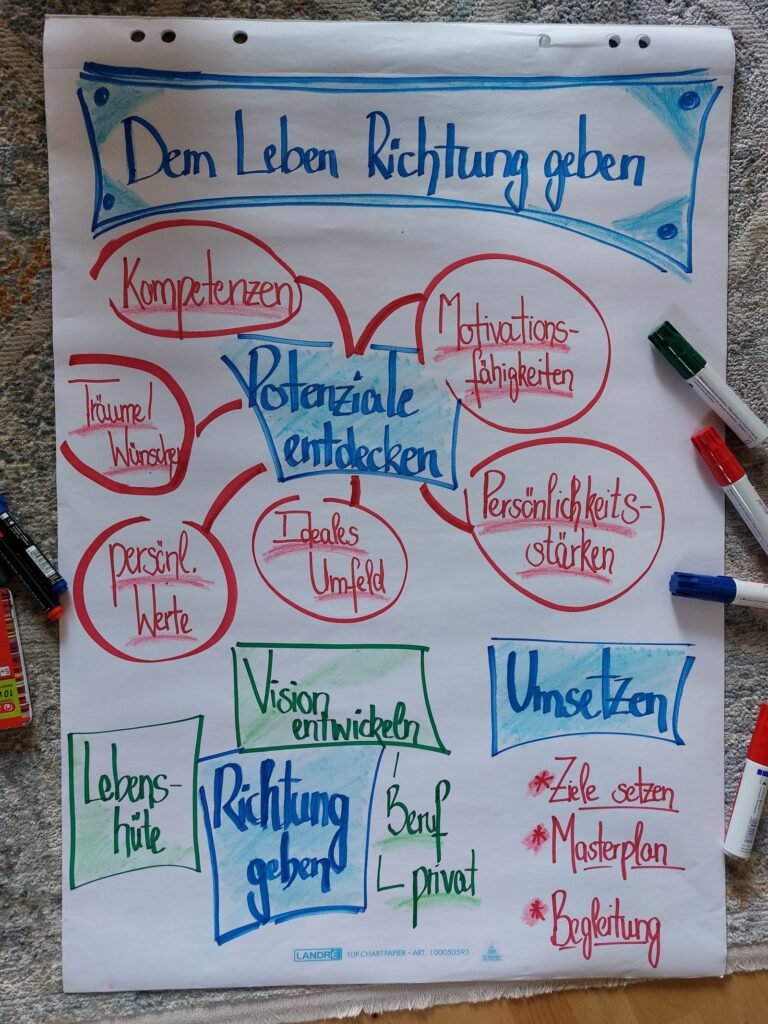 Dem Leben Richtung geben
Kompetenzen
Motivations-
fähigkeiten
Träume/
Wünsche
Potenziale
entdecken
Persönlichkeits-
stärken
persönl.
Werte
Ideales
Umfeld
Vision
entwickeln
Umsetzen
Lebens-
hüte
Richtung
geben
Beruf
privat
* Ziele setzen
* Masterplan
* Begleitung
LANDRÉ FLIP-CHART-PAPIER • ART. 100050593